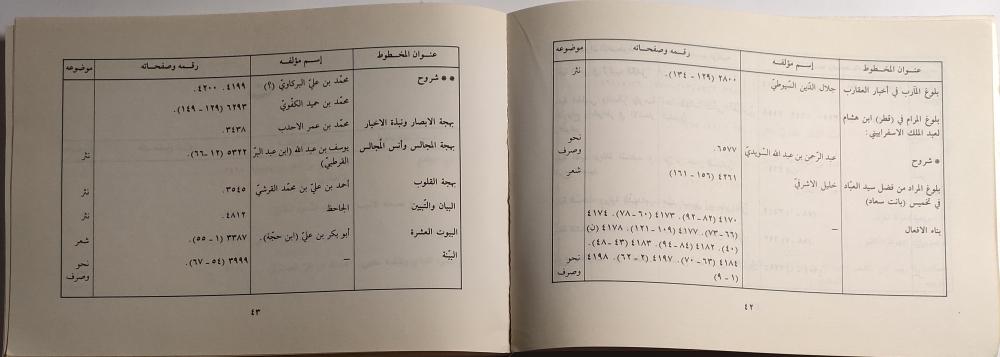 عنوان المخطوط إسم مؤلفه رقمه وصفحاته موضوعه
بلوغ المآرب في أخبار العقارب جلال الدّين السّيوطيّ ٢٨٠٠ (١٢٩ - ١٣٤). نثر
بلوغ المرام في (قطر) ابن هشام
لعبد الملك الاسفراييني:
* شروح عبد الرّحمن بن عبد الله السّويديّ ٦٥٧٧. نحو وصرف
بلوغ المراد من فضل سيد العبّاد خليل الاشرفيّ ٤٢٦١ (١٥٦ - ١٦١) شعر
في تخميس (بانت سعاد)
بناء الافعال — ٤١٧٠ (٨٢ -٩٢). ٤١٧٣ (٦٠ -٧٨). ٤١٧٤
(٦٦ -٧٣). ٤١٧٧ (١٠٩ -١٢١). ٤١٧٨ (ن)
(٤٠). ٤١٨٢ (٨٤ -٩٤). ٤١٨٣ (٤٣ -٤٨).
٤١٨٤ (٦٣ -٧٠). ٤١٩٧ (٢ -٦٢). ٤١٩٨
(١ - ٩) نحو وصرف
٤٢
عنوان المخطوط إسم مؤلفه رقمه وصفحاته موضوعه
** شروح محمّد بن عليّ البركاويّ (؟) ٤١٩٩. ٤٢٠٠.
محمّد بن حميد الكفّويّ ٦٢٩٣ (١٢٩ - ١٤٩).
بهجة الابصار ونبذة الاخيار محمّد بن عمر الاحدب ٣٤٣٨.
بهجة المجالس وأنس المُجالس يوسف بن عبد الله (ابن عبد البرّ ٥٣٢٢ (١٢ -٦٦). نثر
القرطبيّ)
بهجة القلوب أحمد بن عليّ بن محمّد القرشيّ ٣٥٤٥. نثر
البيان والتّبيين الجاحظ ٤٨١٢. نثر
البيوت العشرة أبو بكر بن عليّ (ابن حجّة). ٣٣٨٧ (١ - ٥٥). شعر
البيّنة — ٣٩٩٩ (٥٤ -٦٧). نحو وصرف
٤٣